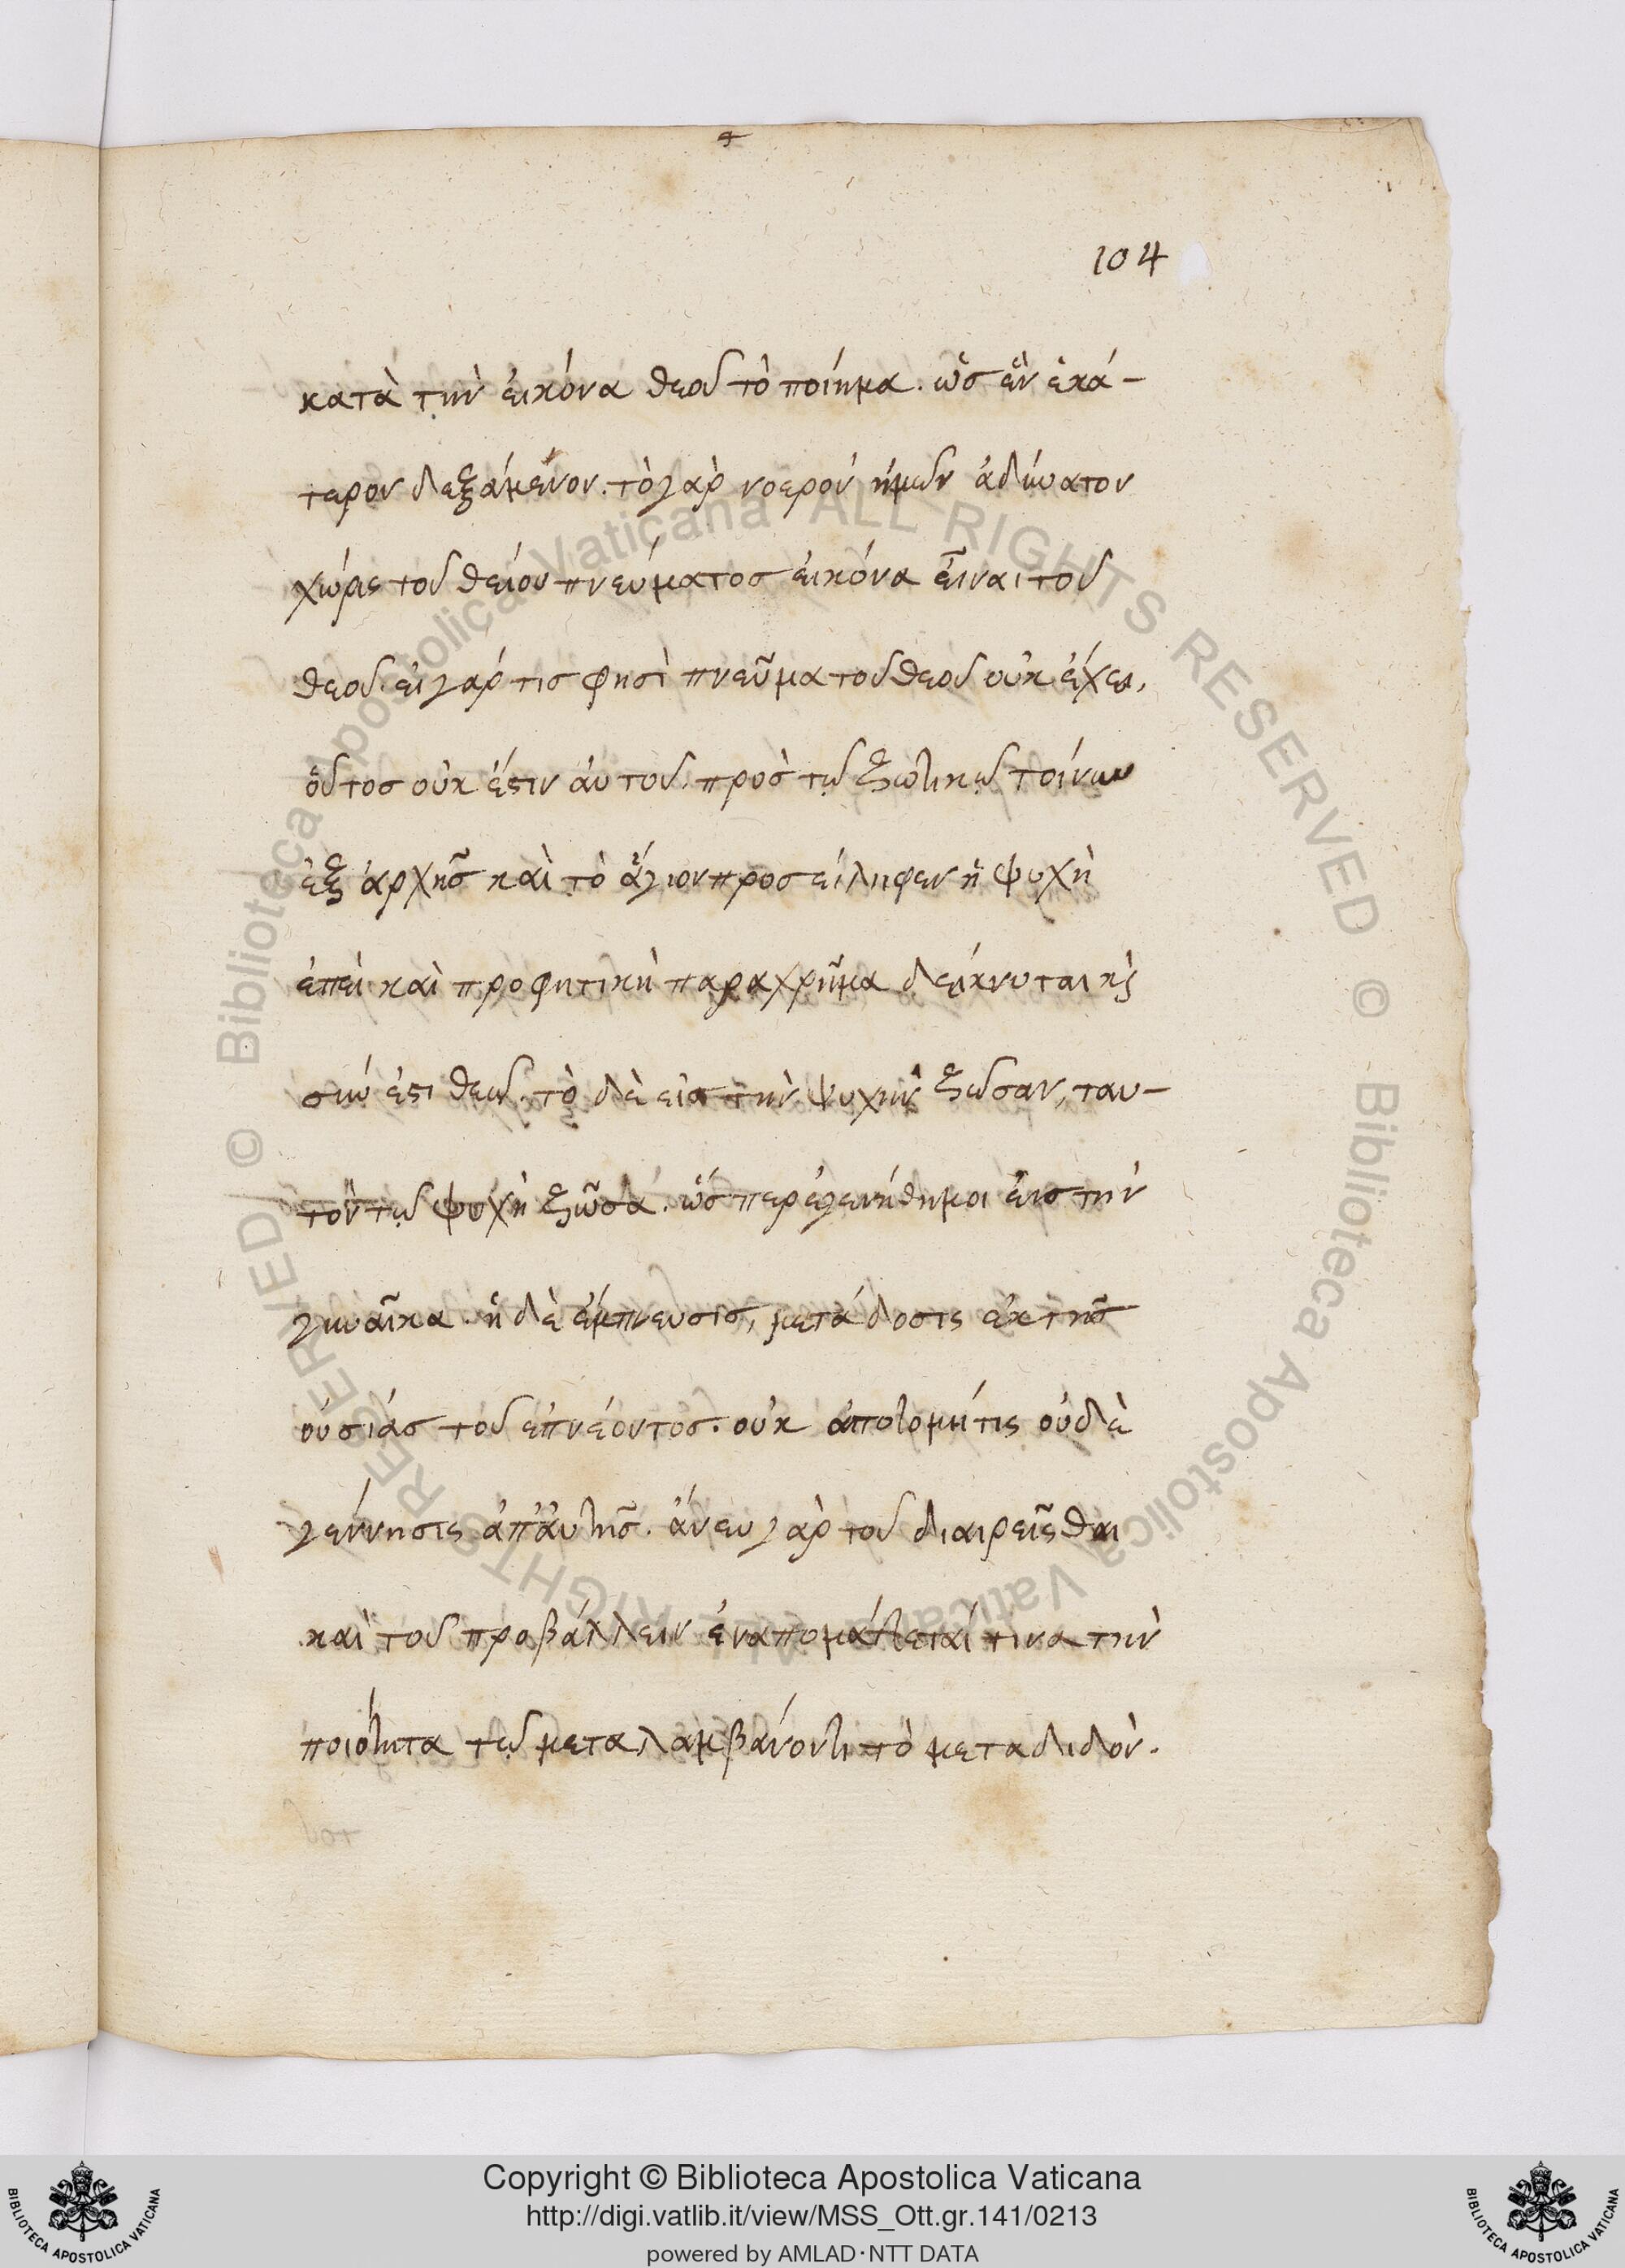 104
κατὰ τὴν εἰκόνα θεοῦ τὸ ποίημα. ὡς ἓν ἑκά-
τερον δεξάμενον. τὸ γὰρ νοερὸν ἡμῶν ἀδύνατον
χωρὶς τοῦ θείου πνεύματος εἰκόνα εἶναι τοῦ
θεοῦ. εἰ γάρ τις φησὶ πνεῦμα τοῦ θεοῦ οὐκ ἔχει,
οὗτος οὐκ ἔστιν αὐτοῦ. πρὸς τῷ ζωτικῷ τοίνυν
ἐξ ἀρχῆς καὶ τὸ ἅγιον προσείληφεν ἡ ψυχὴ
ἐπεὶ καὶ προφητικὴ παραχρῆμα δείκνυται κ̀ς
σύνεστι θεῷ. τὸ δὲ εἰς τὴν ψυχὴν ζῶσαν, ταυ-
τὸν τῷ ψυχὴ ζῶσα. ὥσπερ ἐγενήθη μοι εἰς τὴν
γυναῖκα. ἡ δὲ ἔμπνευσις, μετάδοσις ἐκ τῆς
οὐσίας τοῦ ἐπνέοντος. οὐκ ἀποτομή τις οὐδὲ
γέννησις ἀπ' αὐτῆς. ἄνευ γὰρ τοῦ διαιρεῖσθαι
καὶ τοῦ προβάλλειν ἐναπομάττεταί τινα τὴν
ποιότητα τῷ μεταλαμβάνοντι τὸ μεταδιδόν.
Copyright © Biblioteca Apostolica Vaticana
http://digi.vatlib.it/view/MSS_Ott.gr.141/0213
powered by AMLAD·NTT DATA
BIBLIOTECA APOSTOLICA VATICANA
BIBLIOTECA APOSTOLICA VATICANA
© Biblioteca Apostolica Vaticana ALL RIGHTS RESERVED © Biblioteca Apostolica Vaticana ALL RIGHTS RESERVED